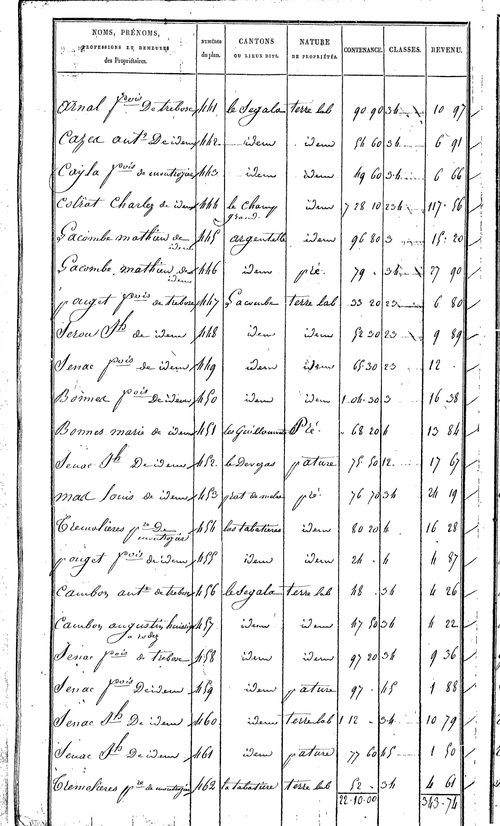 NOMS, PRÉNOMS, PROFESSIONS ET DEMEURES des Propriétaires. NUMÉROS du plan. CANTONS OU LIEUX DITS. NATURE DE PROPRIÉTÉS. CONTENANCE. CLASSES. REVENU.
Arnal fcois De trebosc 441 le Segala terre lab 90 90 34 10 97
Cazea ant.e De idem 442 idem idem 56 60 34 6 91
Cayla fcois de montrozier 443 idem idem 49 60 34 6 66
Colrat Charles de idem 444 le Champ grand idem 7 28 10 234 117 56
Lacombe mathieu de idem 445 argentelle idem 96 80 3 15 20
Lacombe mathieu de idem 446 idem pré 79 34 27 90
pouget fcois de trebosc 447 Lacombe terre lab 33 20 23 6 80
Serou Jh de idem 448 idem idem 52 30 23 9 89
Senac fcois de idem 449 idem idem 65 30 23 12
Bonnes fcois De idem 450 idem idem 1 04 30 3 16 38
Bonnes marie de idem 451 Pré 68 20 4 13 84
Senac Jh De idem 452 le Devezas pature 75 50 12 17 67
mas louis de idem 453 prat de pré 76 70 34 24 19
Tremolieres pre De montrozier 454 las tabatieres idem 80 20 4 16 28
pouget fcois de idem 455 idem idem 24 4 4 87
Cambon ant.e de trebosc 456 le Segala terre lab 48 34 4 26
Cambon augustin huissier a rodez 457 idem idem 47 50 34 4 22
Senac fcois de trebosc 458 idem idem 97 20 34 9 36
Senac fcois De idem 459 idem pature 97 45 1 88
Senac Jh De idem 460 idem terre lab 1 12 34 10 79
Senac Jh De idem 461 idem pature 77 60 45 1 50
Tremolieres pre de montrozier 462 la tabatiere terre lab 52 34 4 61
22.10.00 343.74